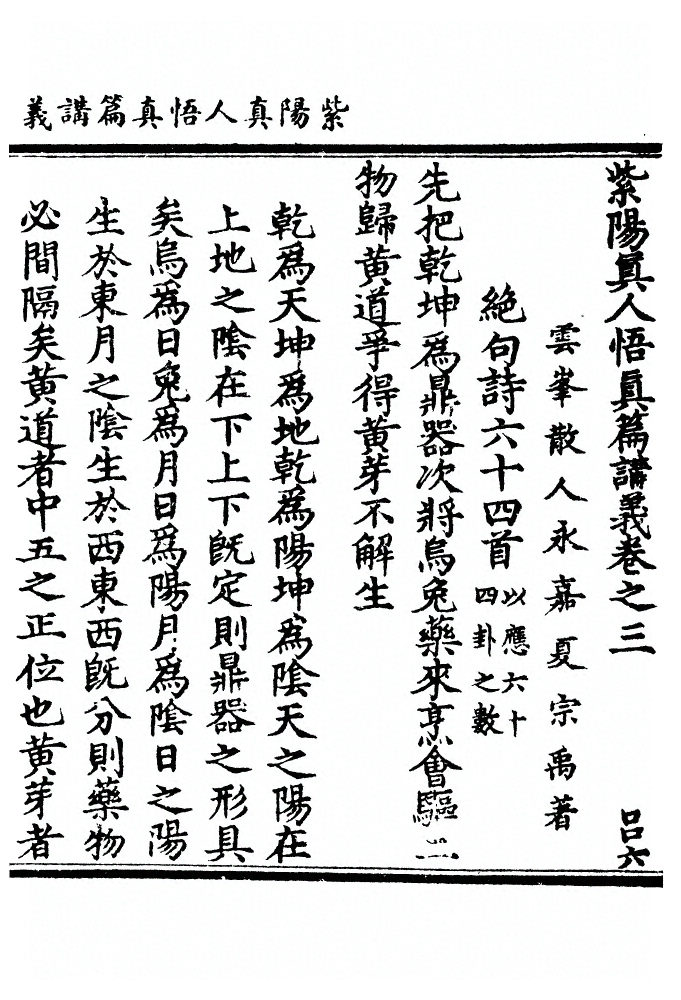 紫陽真人悟真篇講義
紫陽眞人悟眞篇講義卷之三 呂六
雲峯散人永嘉夏宗禹著
絕句詩六十四首 以應六十
四卦之數
先把乾坤為鼎器次將烏兔藥來烹會驅二
物歸黃道爭得黃芽不解生
乾為天坤為地乾為陽坤為陰天之陽在
上地之陰在下上下旣定則鼎器之形具
矣烏為日兔為月日為陽月為陰日之陽
生於東月之陰生於西東西旣分則藥物
必間隔矣黃道者中五之正位也黃芽者